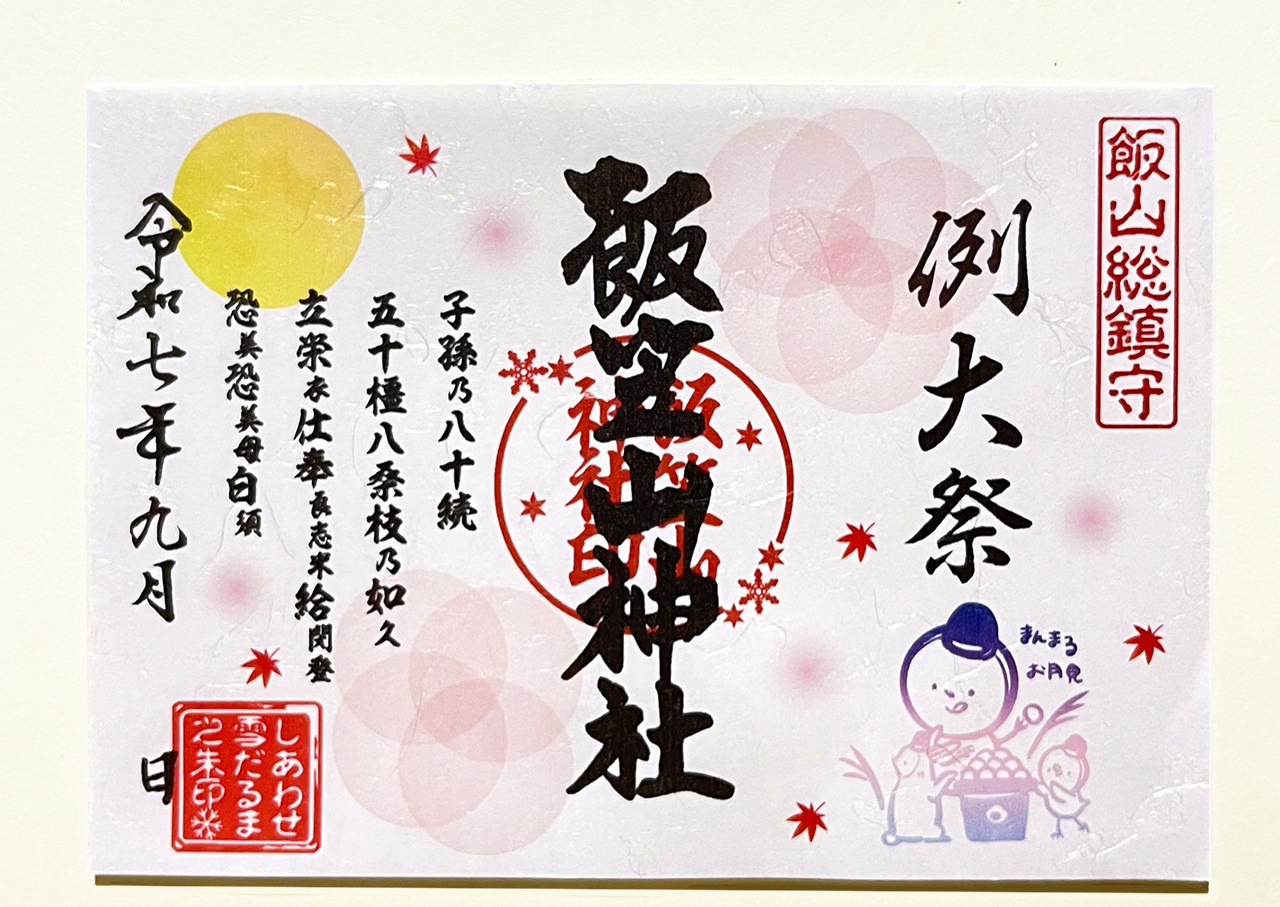 飯山総鎮守
例大祭
まんまる
お月見
飯笠山神社
飯笠山
神社印
子孫乃八十続
五十橿八桒枝乃如久
立栄衣仕奉良志米給閇登
恐美恐美母白須
令和七年九月 日
しあわせ
雪だるま
ご朱印